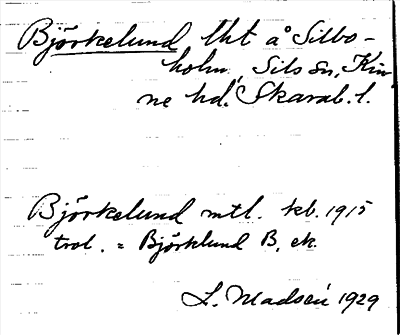 Björkelund lht å Silbo-
holm, Sils sn, Kin-
ne hd. Skarab. l.
Björkelund mtl. kb. 1915
trol. = Björklund B, ek.
L. Madsén 1929